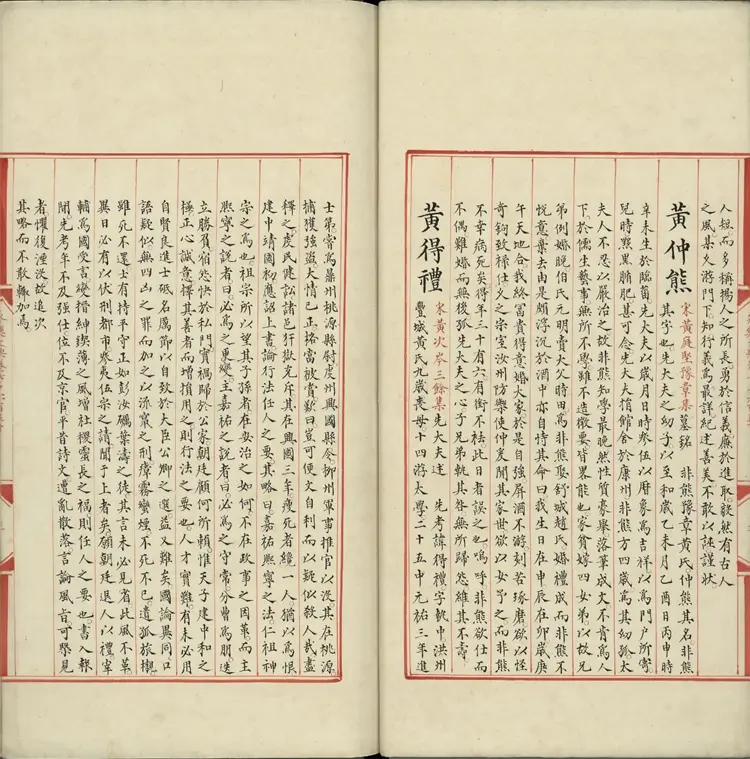 人短而多稱揚人之所長勇於信義廉於進取毅然有古人
之風某久游門下知行義爲最詳紀述善美不敢以誣謹狀
黃仲熊 宋黃庭堅豫章集墓銘 非熊豫章黃氏仲熊其名非熊
其字也先大夫之幼子以至和歲乙未月乙酉日丙申時
辛未生於臨菑先大夫以歲月日時參伍以曆象爲吉祥以爲門戶所寄
兒時黟黑腯肥甚可念先大夫捐館舍於康州非熊方四歲爲其幼孤太
夫人不忍以嚴治之故非熊知學最晚然性質豪舉落筆成文不肯爲人
下於儒生藝事無所不學雖不造微要皆畧能也家貧嫁四女弟以故兄
弟例婚晚伯氏元明賣大父時田爲非熊娶舒城趙氏婚禮成而非熊不
悅意棄去由是頗浮沉於酒中亦自恃其命曰我生日在申辰在卯歲庚
午天地合我終富貴得意婚大家於是自強屏酒不游刻苦琢磨欲以怪
奇鉤致祿仕久之宗室汝州防禦使仲爰聞其家世欲以女予之而非熊
不幸病死矣得年三十有六有銜不袪此日者誤之也嗚呼非熊欲仕而
不偶難婚而無後孤先大夫之心子兄弟孰其咎無所歸怨維其不壽
黃得禮 宋黃次岑三餘集先大夫述 先考諱得禮字執中洪州
豐城黃氏九歲喪母十四游太學二十五中元祐三年進
士第嘗爲鼎州桃源縣尉虔州興國縣令柳州軍事推官以沒其在桃源
捕獲強盜大情已正格當被賞歎曰豈可便文自利而以疑似殺人哉盡
釋之虔民健訟諸邑犴獄充斥其在興國三年瘦死者纔一人猶以爲恨
建中靖國初應詔上書論行法任人之要其略曰嘉祐熙寧之法仁祖神
宗之爲也祖宗所以望其子孫者在安治之如何不在政事之因革而主
熙寧之說者曰必爲之更變主嘉祐之說者曰必爲之守常分曹爲朋迭
立勝負宿怨快於私門實禍歸於公家朝廷顧何所賴惟天子建中和之
極正心誠意擇其善者而增損用之則行法之要也人才實難有未必用
自賢良進士砥名厲節以自致於大臣公卿之選益又難矣國論異同口
語疑似無四凶之罪而加之以流竄之刑瘴霧蠻煙不死不已遺孤旅櫬
雖死不還士有持平守正如彭汝礪葉濤之徒其言未必見省此風不革
異日必有以伏刑都市參夷伍宗之請聞于上者矣願朝廷退人以禮宰
輔爲國受言變搢紳鍥薄之風增社稷靈長之福則任人之要也書入報
聞先考年不及強仕位不及京官平昔詩文遭亂散落言論風旨可聚見
者懼復湮沒故追次
其略而不敢輒加焉